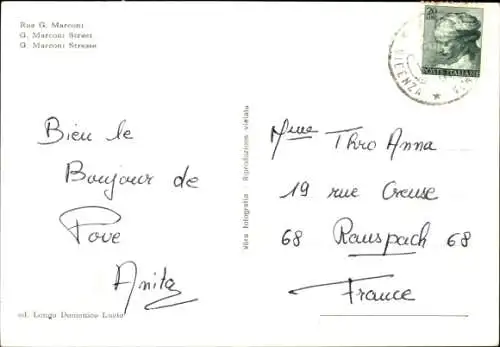 Rue G. Marconi
G. Marconi Street
G. Marconi Strasse
20
POSTE ITALIANE
VICENZA
Bien le
Bonjour de
Pove
Anita
ed. Longo Domenico Lucio
Vera fotografia - Riproduzione vietata
Mme Thro Anna
19 rue Creuse
68 Ranspach 68
France